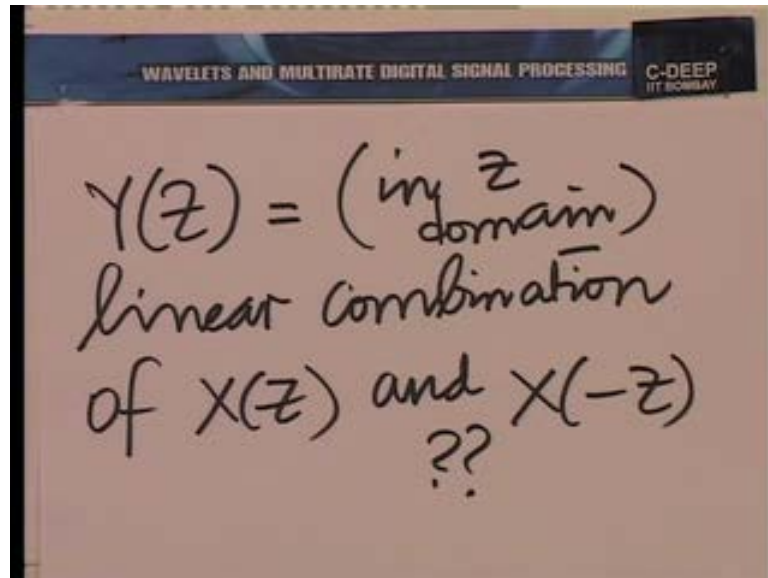 WAVELETS AND MULTIRATE DIGITAL SIGNAL PROCESSING
C-DEEP
IIT BOMBAY
Y(Z) = (in z domain)
linear combination
of X(Z) and X(-Z)
??